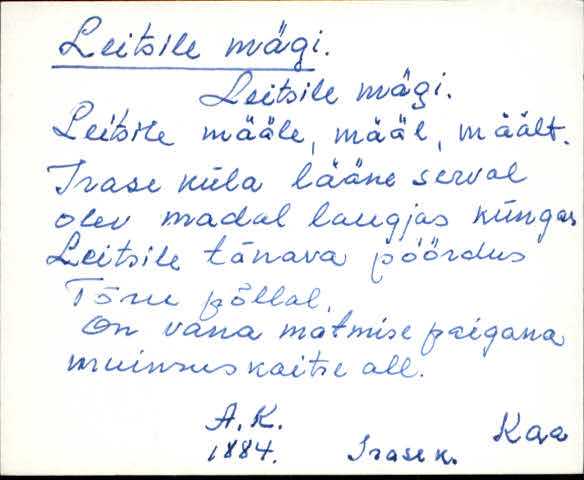 Leitsile mägi.
Leitsile mägi.
Leitsile määle, määl, mäält.
Irase küla lääne serval
olev madal laugjas küngas
Leitsile tänava pöördus
Tõnu põllal.
On vana matmise paigana
muinsuskaitse all.
A.K. Kaa
1884. Irase k.